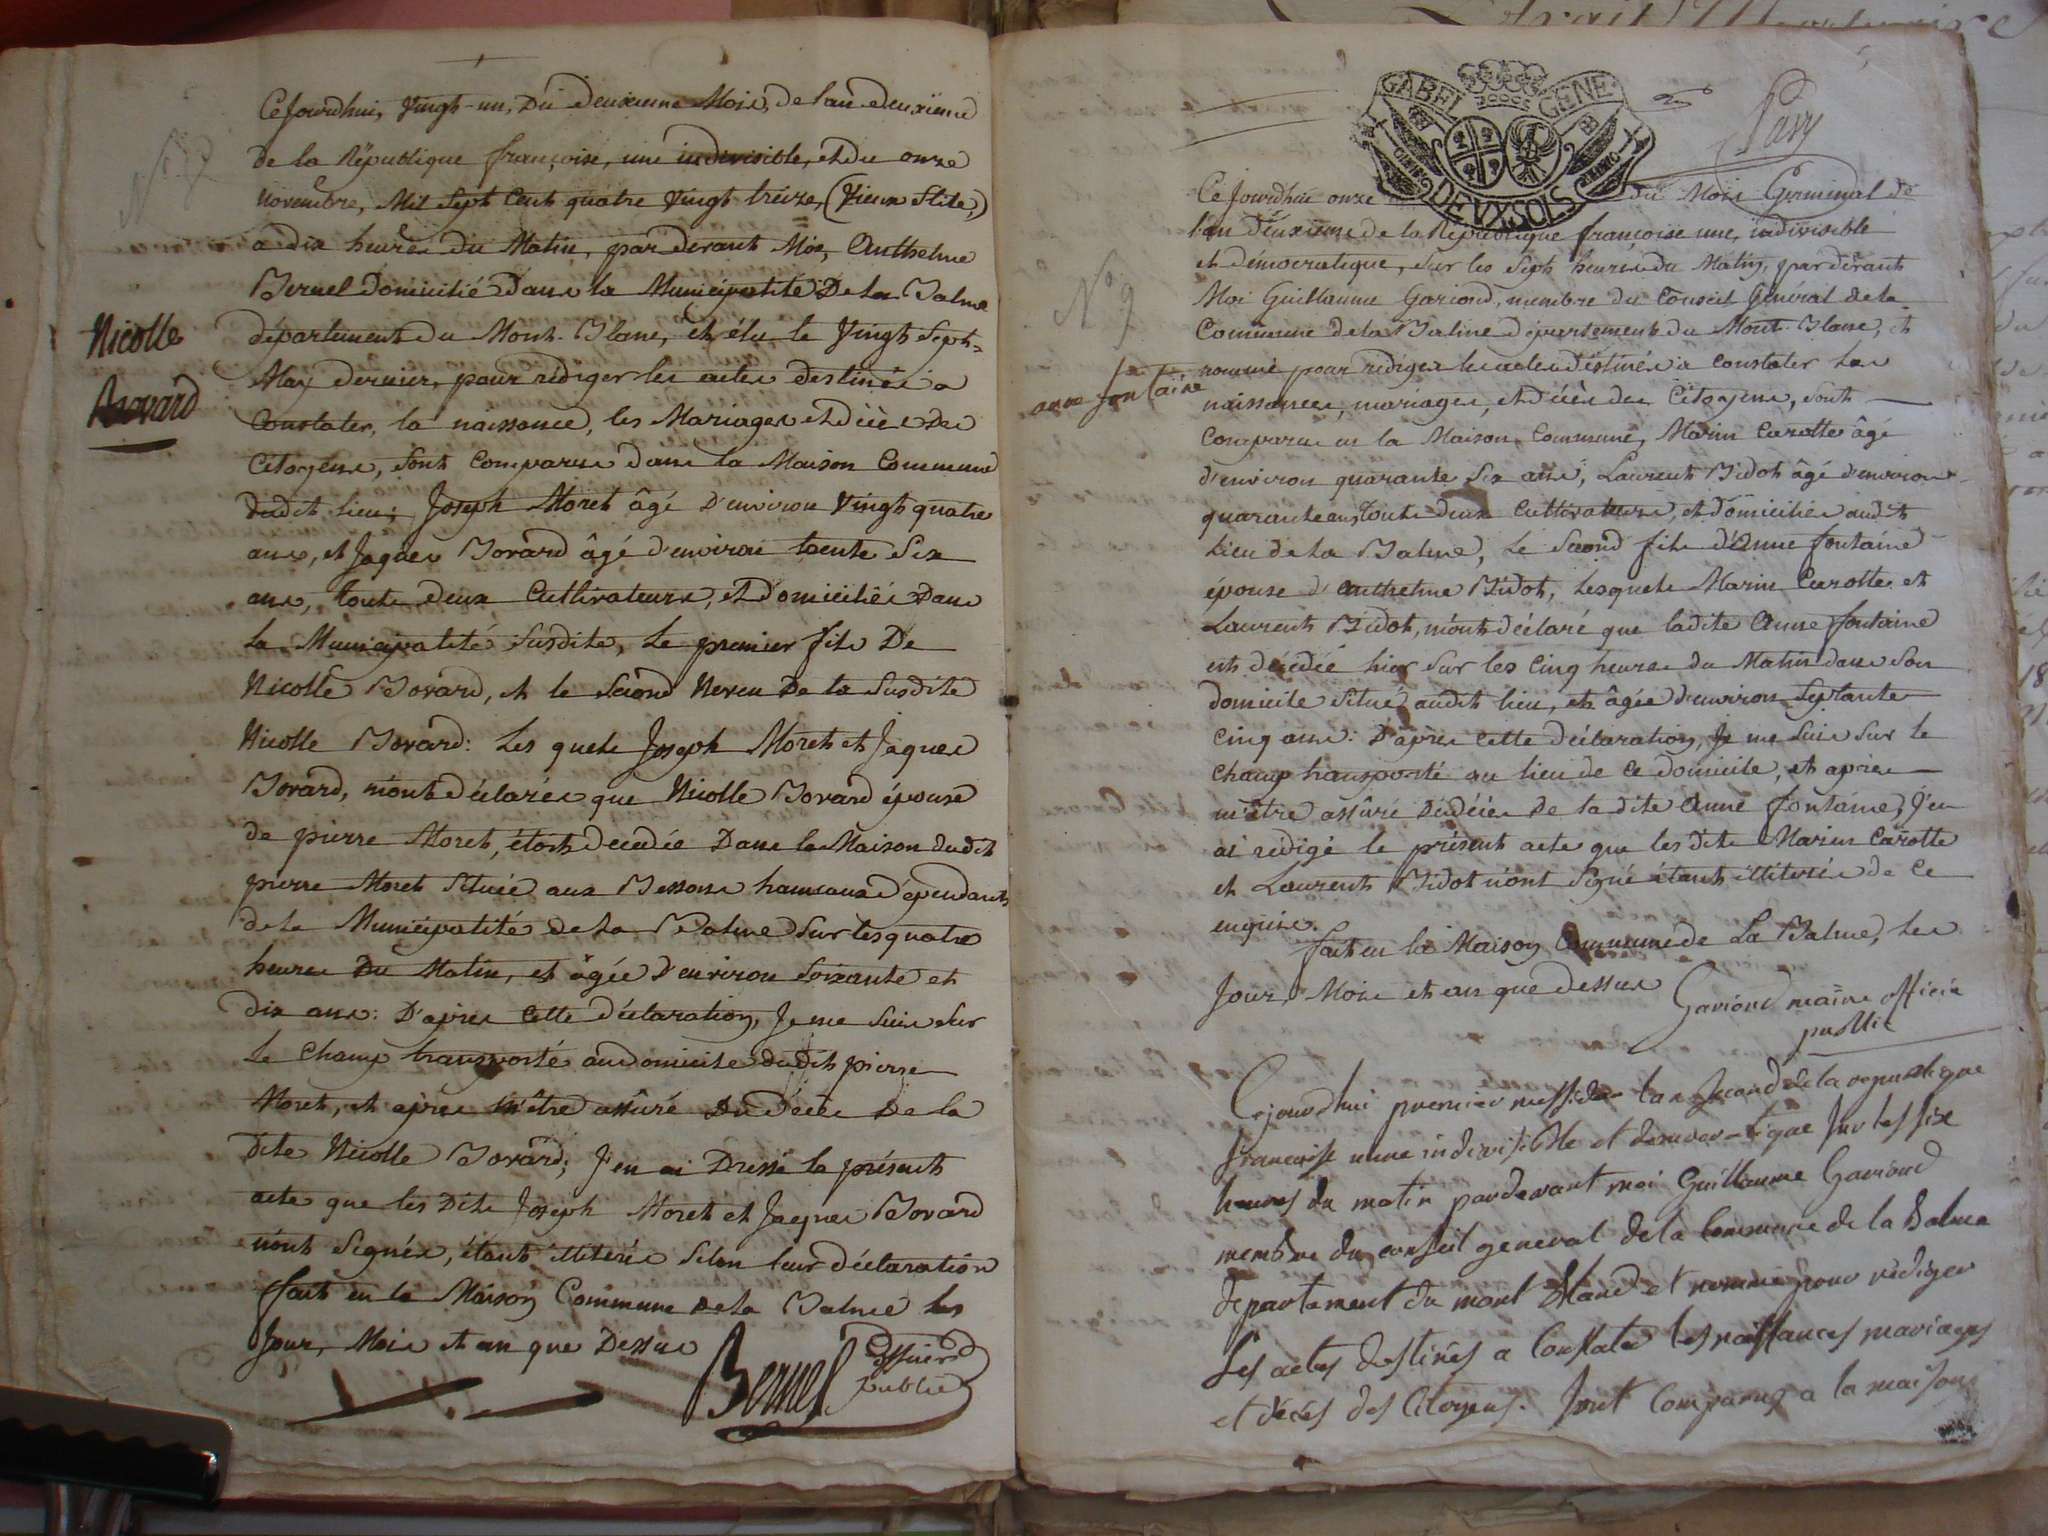 Ce Jourdhui, Vingt-un, Du deuxieme Mois, de l'an deuxième
de la République françoise, une indivisible, et du onze
Novembre, Mil Sept Cent quatre Vingt treize, (Vieux Stile,)
a dix heures du Matin, par devant Moi, Anthelme
Bernel Domicilié Dans la Municipalité De La Balme
N° 8
département du Mont-Blanc, et élu le Vingt Sept
May dernier, pour rédiger les actes destinés a
Nicolle
Bovard
Constater, la naissance, les Mariages et décès Des
Citoyens, Sont Comparus dans la Maison Commune
dudit lieu; Joseph Moret âgé D'environ Vingt quatre
ans, et Jaques Bovard âgé d'environ trente Six
ans, touts deux Cultivateurs, et Domiciliés Dans
la Municipalité Susdite, Le premier fils De
Nicolle Bovard, et le Second Neveu De la Susdite
Nicolle Bovard: Les quels Joseph Moret et Jaques
Bovard, m'ont déclarés que Nicolle Bovard épouse
de pierre Moret, étoit décédée Dans la Maison dudit
pierre Moret Située aux Bessons hameaux dépendants
de la Municipalité de la Balme Sur les quatre
heures Du Matin, et âgée D'environ Soixante et
dix ans: D'après Cette déclaration, Je me Suis Sur
Le Champ transporté au domicile dudit pierre
Moret, et après m'être assûré Du Décès De la
dite Nicolle Bovard; J'en ai Dressé le présent
acte que les Dits Joseph Moret et Jaques Bovard
n'ont Signés, étant illiterés Selon leur déclaration
fait en la Maison Commune de la Balme les
Jour, Mois et an que Dessus
Bernel Officier
public
GABEL GENE
DEUX SOLS
Pavy
Ce Jourdhui onze du Mois Germinal de
l'an deuxième de la République françoise une, indivisible
et démocratique, Sur les Sept heures du Matin, par devant
N° 9
Moi Guillaume Gariond, membre du Conseil Général de la
Commune de la Balme département du Mont-Blanc, et
nommé pour rédiger les actes destinés a Constater Les
anne fontaine
naissances, mariages, et décès des Citoyens, Sont
Comparus en la Maison Commune, Marin Carotte âgé
d'environ quarante Six ans, Laurent Bidot âgé d'environ
quarante ans, touts deux Cultivateurs, et domiciliés audit
Lieu de la Balme, Le Second fils d'Anne fontaine
épouse d'Anthelme Bidot, Lesquels Marin Carotte et
Laurent Bidot, m'ont déclaré que ladite Anne fontaine
est décédée hier Sur les Cinq heures du Matin dans Son
domicile Situé audit lieu, et âgée d'environ Septante
Cinq ans: D'après Cette déclaration, Je me Suis Sur le
Champ transporté au lieu de Ce domicile, et après
m'être assûré du décès De la dite Anne fontaine, J'en
ai rédigé le présent acte que les dits Marin Carotte
et Laurent Bidot n'ont Signé étant illiterés de Ce
enquis.
fait en la Maison Commune de La Balme, Les
Jour, Mois et an que dessus
Gariond maire officier
public
Cejourdhui premier messidor lan second de la republique
francoise une indivisible et democratique sur les six
heures du matin pardevant moi Guillaume Gariond
membre du conseil general de la Commune de la Balme
departement du mont Bland et nommé pour rediger
les actes destinés a Constater les naissances mariages
et décés des Citoyens. Sont Comparus a la maison